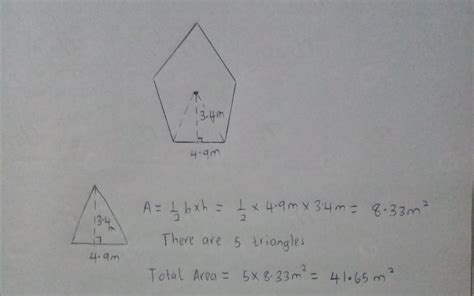 3.4m
4.9m
3.4
m
4.9m
A = 1/2 b x h = 1/2 x 4.9m x 3.4m = 8.33m²
There are 5 triangles
Total Area = 5 x 8.33m² = 41.65m²